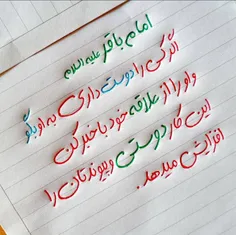 امام باقر علیه السلام
اگر کسی را دوست داری به او بگو
و او را از علاقه خود با خبر کن
این کار دوستی و پیوندتان را
افزایش میدهد.